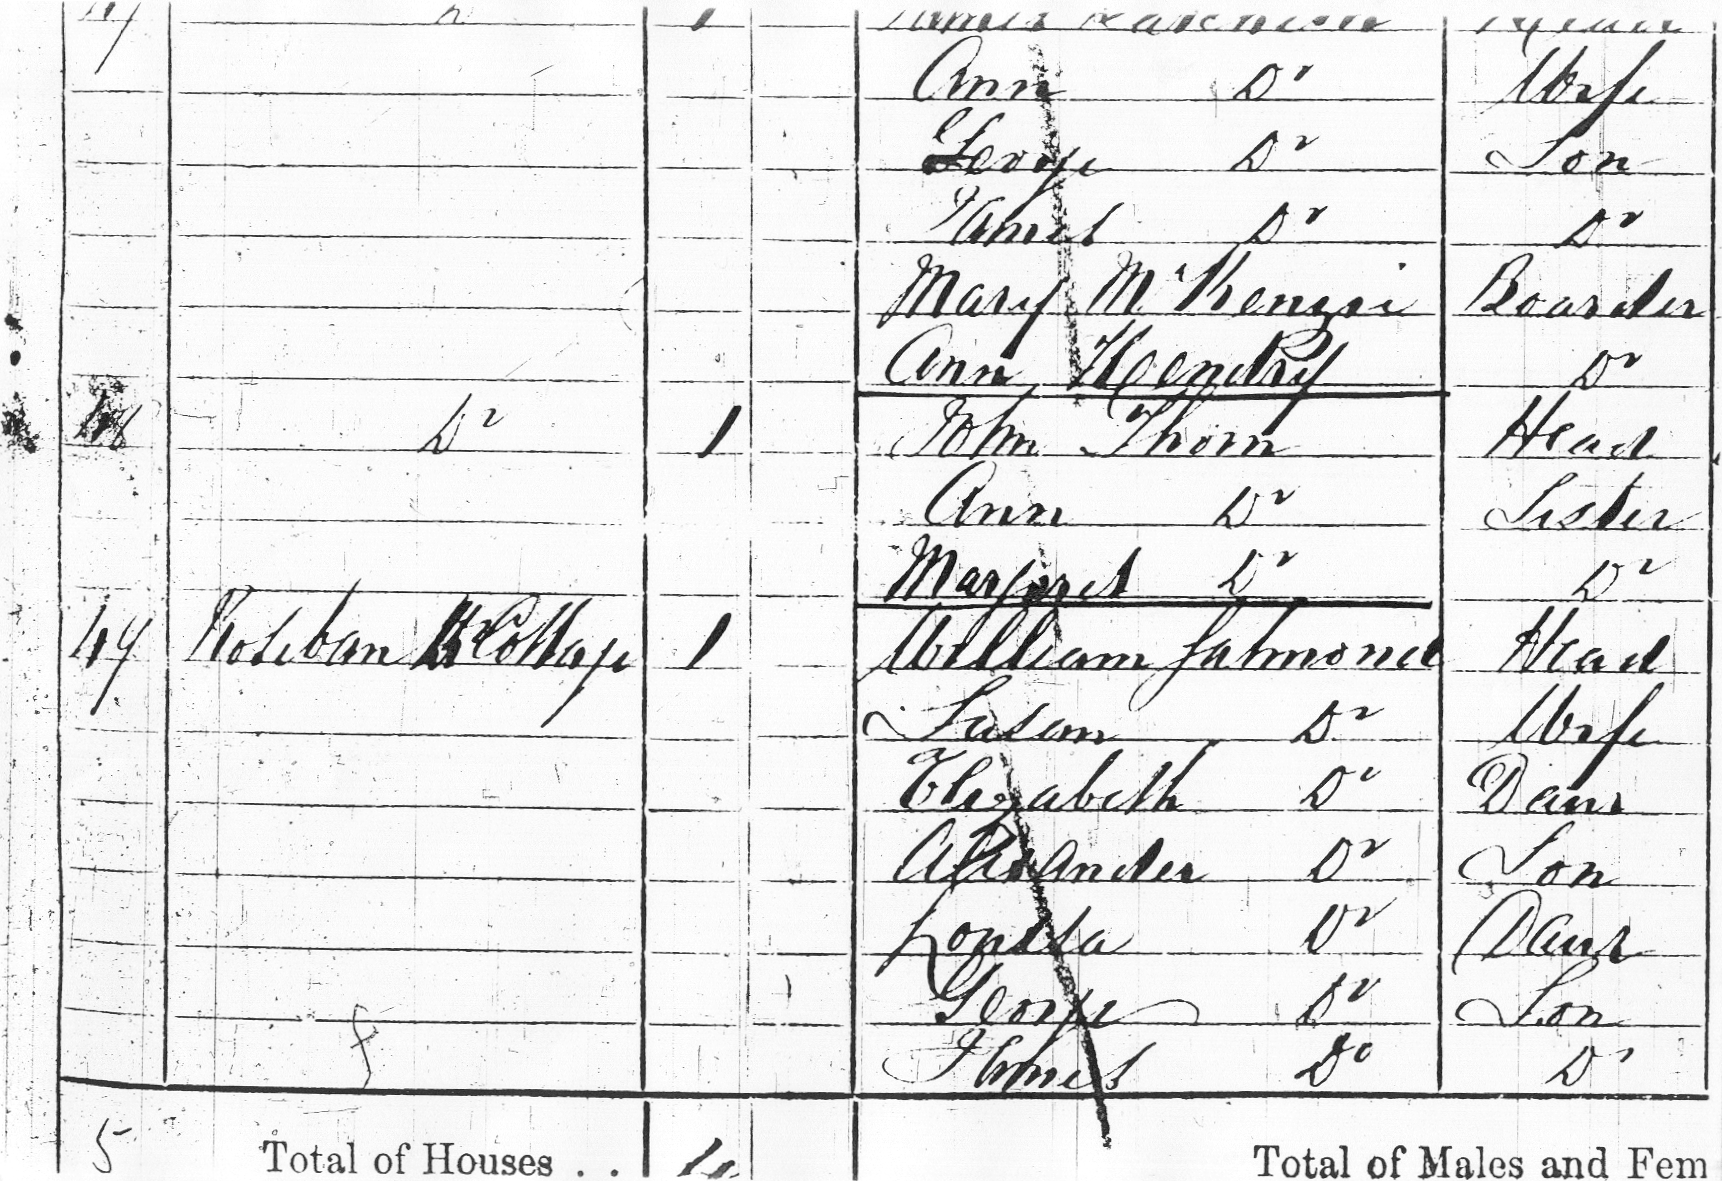 Ann Do Wife
George Do Son
James Do Do
Mary McKenzie Boarder
Ann Hendry Do
48 Do 1 John Thorn Head
Ann Do Sister
Margaret Do Do
49 Roseban Cottage 1 William Salmond Head
Susan Do Wife
Elizabeth Do Daur
Alexander Do Son
Louisa Do Daur
George Do Son
James Do Do
5 Total of Houses . . Total of Males and Fem